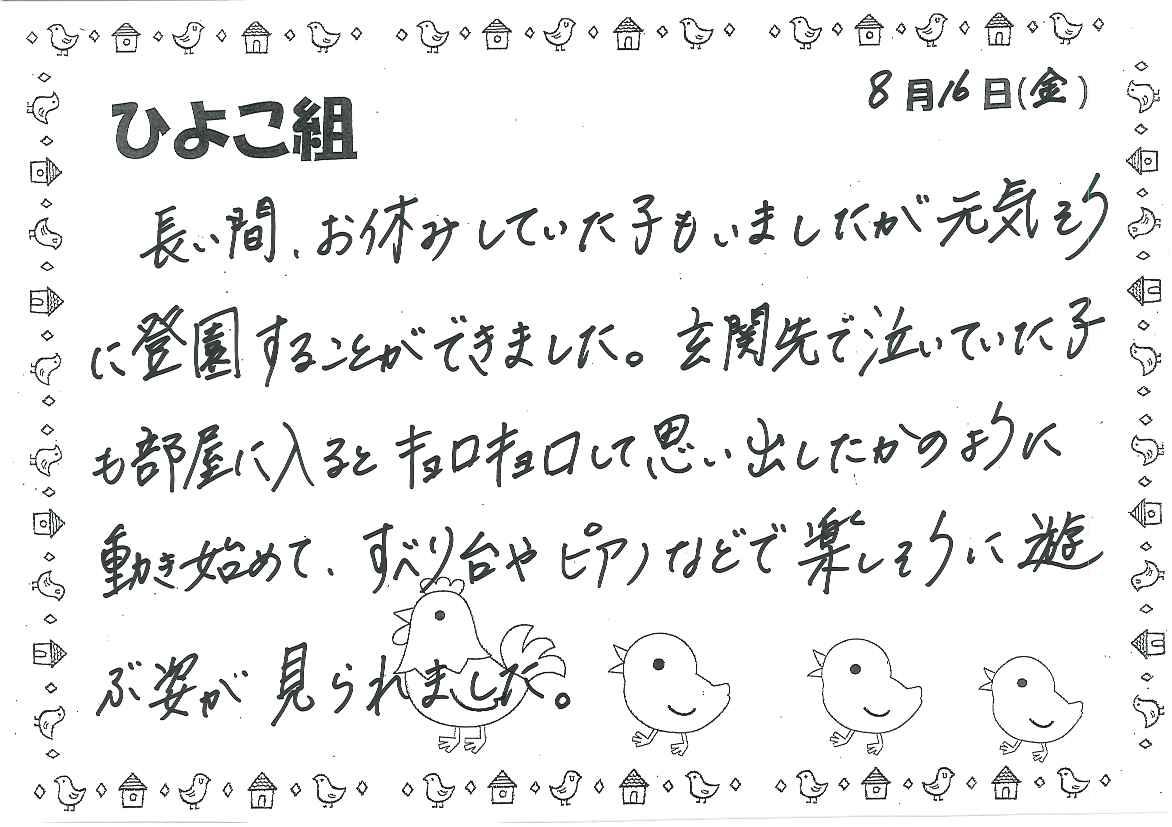 8月16日(金)
ひよこ組
長い間、お休みしていた子もいましたが元気そう
に登園することができました。玄関先で泣いていた子
も部屋に入るとキョロキョロして思い出したかのように
動き始めて、すべり台やピアノなどで楽しそうに遊
ぶ姿が見られました。